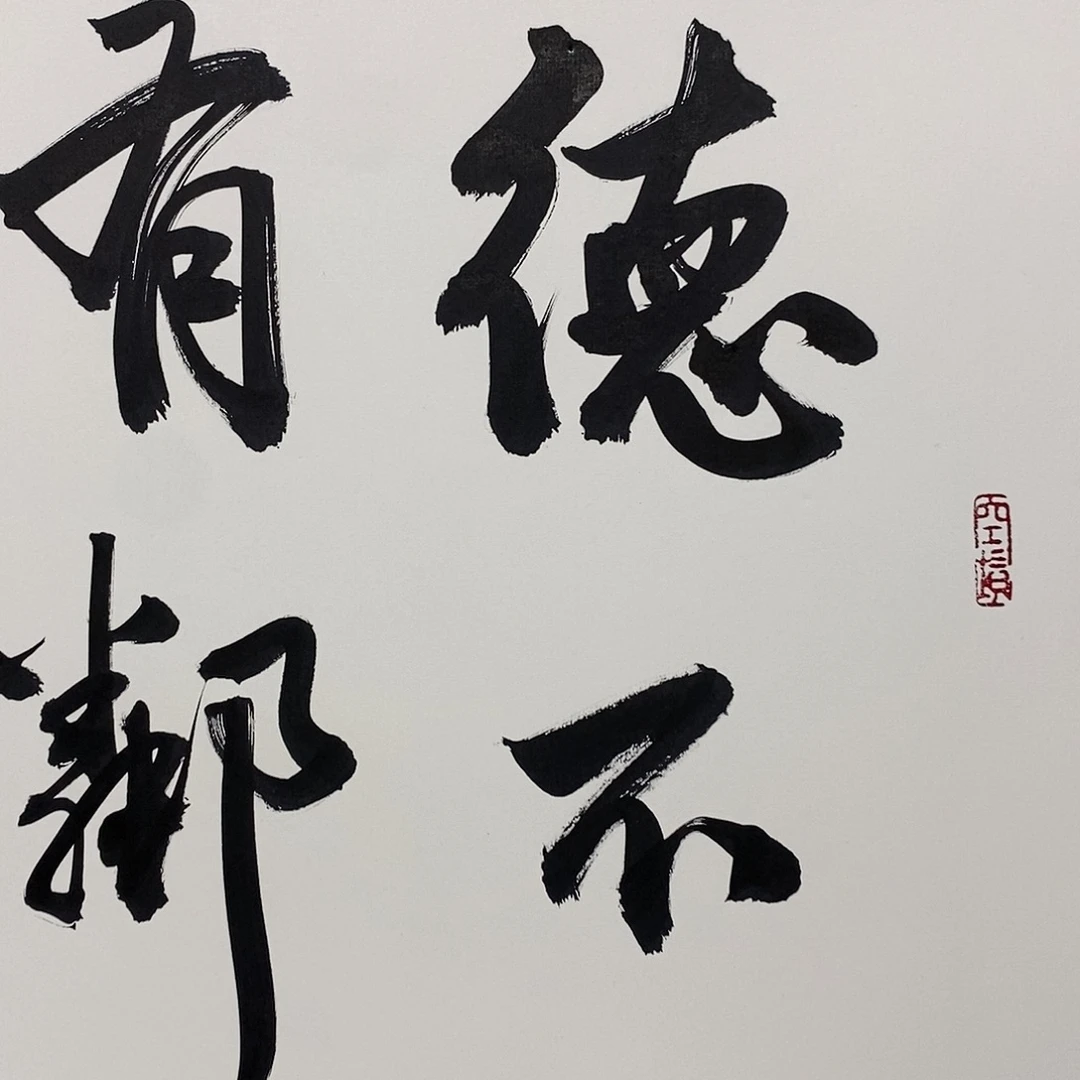 德不
有鄰